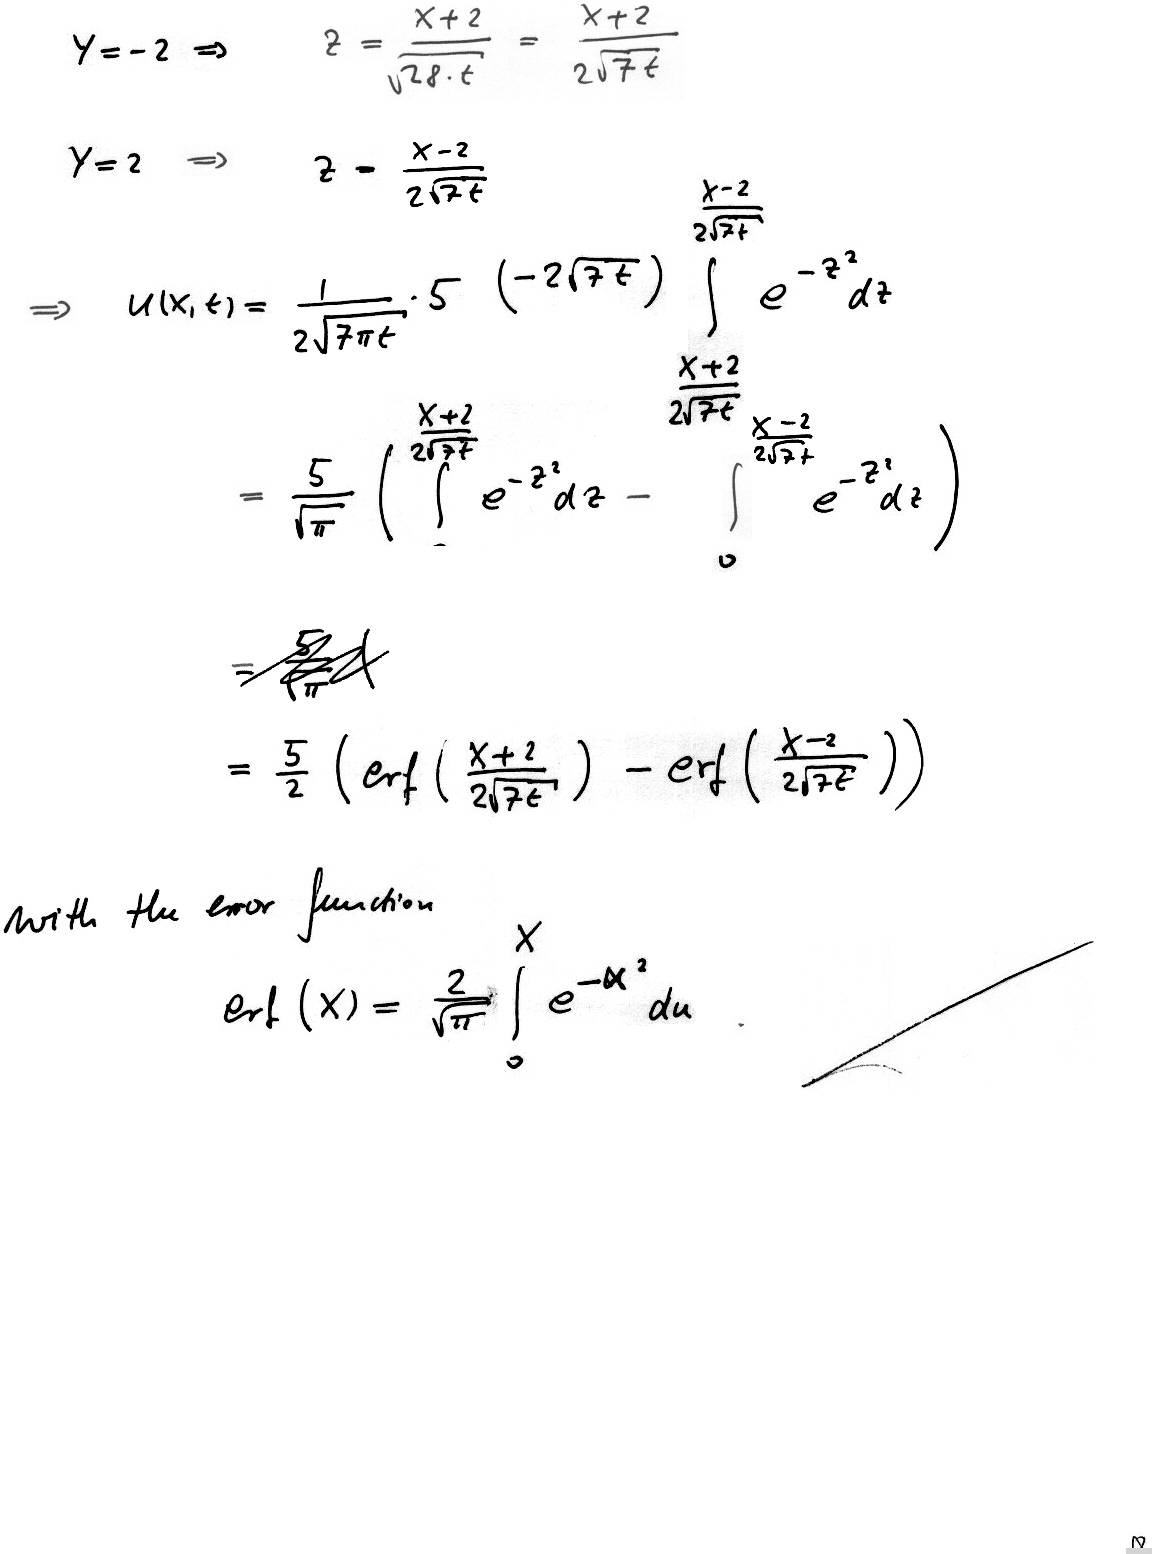 Y = -2 ⇒ z = (x+2)/√(28·t) = (x+2)/(2√(7t))
Y = 2 ⇒ z - (x-2)/(2√(7t))
⇒ u(x,t) = 1/(2√(7πt)) · 5 (-2√(7t)) ∫_{(x+2)/(2√(7t))}^{(x-2)/(2√(7t))} e^{-z²} dz
= 5/√π ( ∫_0^{(x+2)/(2√(7t))} e^{-z²} dz - ∫_0^{(x-2)/(2√(7t))} e^{-z²} dz )
= 5/√π
= 5/2 ( erf( (x+2)/(2√(7t)) ) - erf( (x-2)/(2√(7t)) ) )
with the error function
erf(x) = 2/√π ∫_0^x e^{-u²} du .